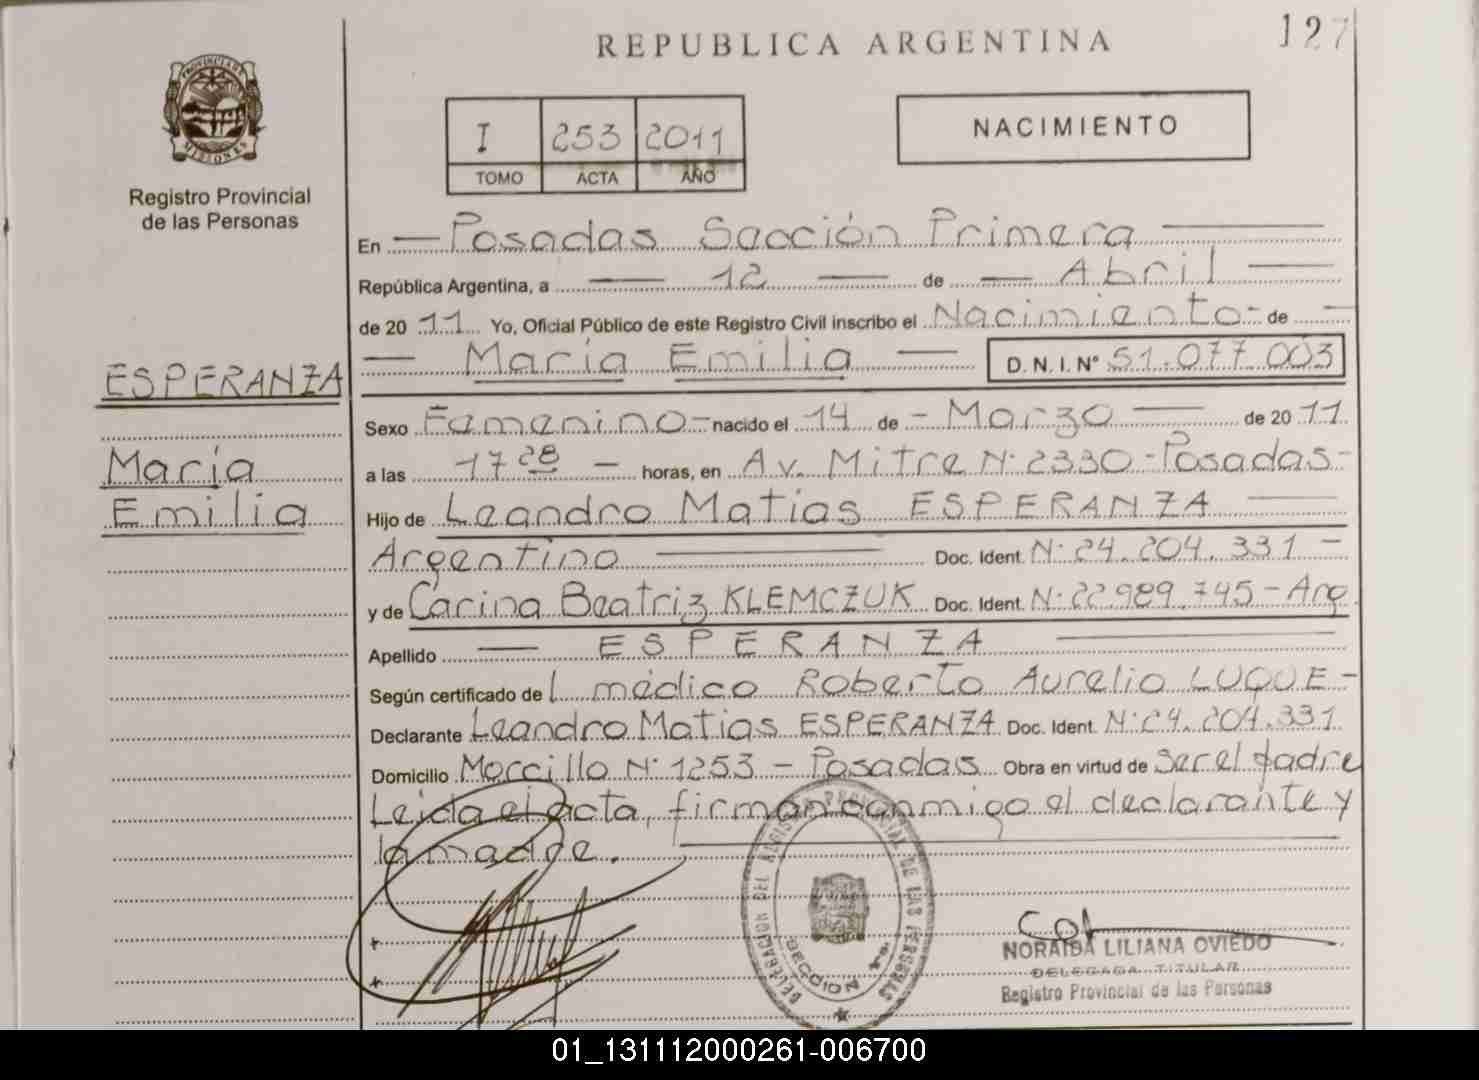 127
REPUBLICA ARGENTINA
PROVINCIA DE
MISIONES
Registro Provincial
de las Personas
I 253 2011
TOMO ACTA AÑO
NACIMIENTO
En — Posadas Sección Primera —
República Argentina, a — 12 — de — Abril —
de 20 11 Yo, Oficial Público de este Registro Civil inscribo el Nacimiento - de —
— María Emilia — D.N.I. Nº 51.077.003
ESPERANZA
María
Emilia
Sexo Femenino - nacido el 14 de - Marzo — de 20 11
a las 17 28 — horas, en Av. Mitre Nº 2330 - Posadas -
Hijo de Leandro Matias ESPERANZA —
Argentino — Doc. Ident. Nº 24.204.331 —
y de Carina Beatriz KLEMCZUK Doc. Ident. Nº 22.989.745 - Arg
Apellido — ESPERANZA —
Según certificado del médico Roberto Aurelio LUQUE -
Declarante Leandro Matias ESPERANZA Doc. Ident. Nº 24.204.331
Domicilio Morcillo Nº 1253 - Posadas Obra en virtud de ser el padre
Leida el acta, firman conmigo el declarante y
la madre.
DELEGACION DEL REGISTRO PROVINCIAL DE LAS PERSONAS
SECCION 1ª
NORAIDA LILIANA OVIEDO
DELEGADA TITULAR
Registro Provincial de las Personas
01_131112000261-006700